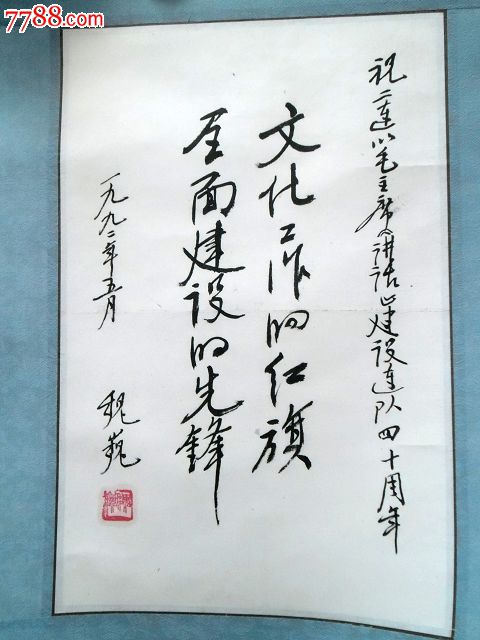 7788.com
祝二连以毛主席《讲话》建设连队四十周年
文化工作的红旗
全面建设的先锋
一九九二年五月
魏巍